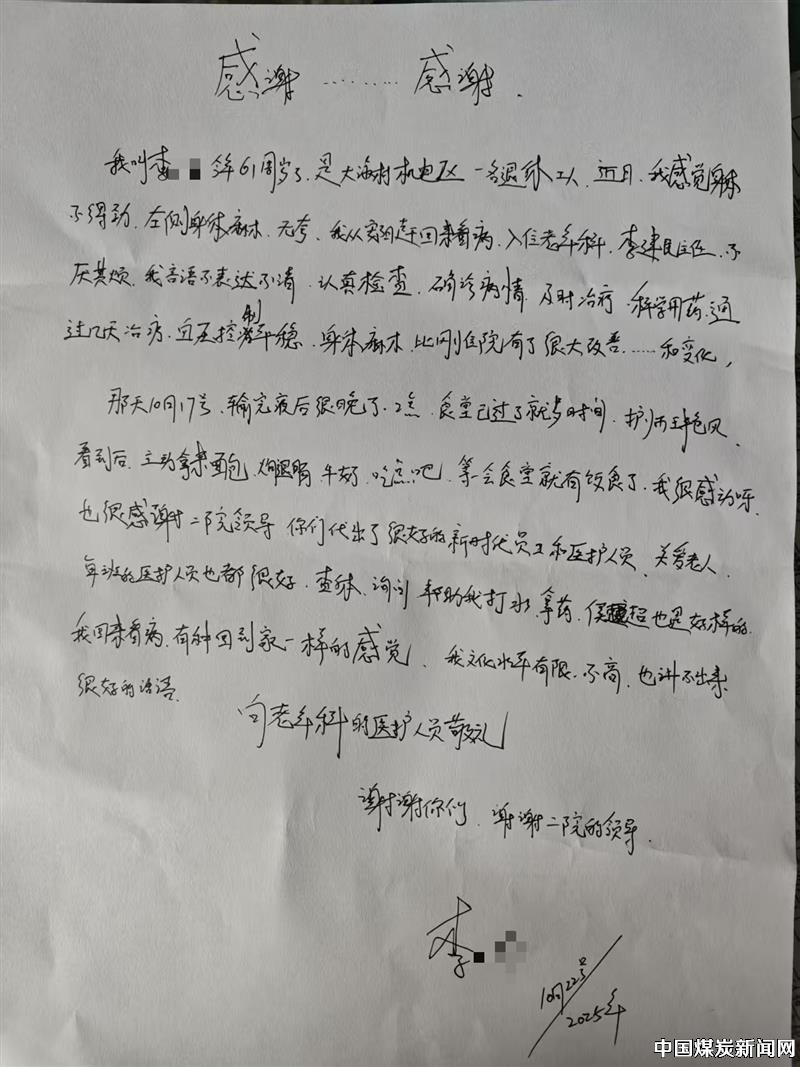 感谢........感谢.
我叫李 今年61周岁了.是大海村机电区一名退休工人.近日.我感觉身体
不得劲.左侧身体麻木.无夸.我从襄阳赶回来看病.入住老年科.李建民主任.不
厌其烦.我言语不表达不清.认真检查.确诊病情.及时治疗.科学用药.通
过几天治疗.血压控制平稳.身体麻木.比刚住院有了很大改善.....和变化,
那天10月17号.输完液后很晚了.2点.食堂已过了就步时间.护师王艳风.
看到后.主动拿来面包.火腿肠.牛奶.吃点吧.等一会食堂就有饭食了.我很感动呀.
也很感谢二院领导 你们代出了很好的新时代员工和医护人员、关爱老人.
每班的医护人员也都很好.查体、询问 帮助我打水.拿药. 超也是好样的.
我回来看病.有种回到家一样的感觉、我文化水平有限.不高.也讲不出来
很好的话语.
向老年科的医护人员敬礼
谢谢你们.谢谢二院的领导.
李
10月22号
2025年
中国煤炭新闻网